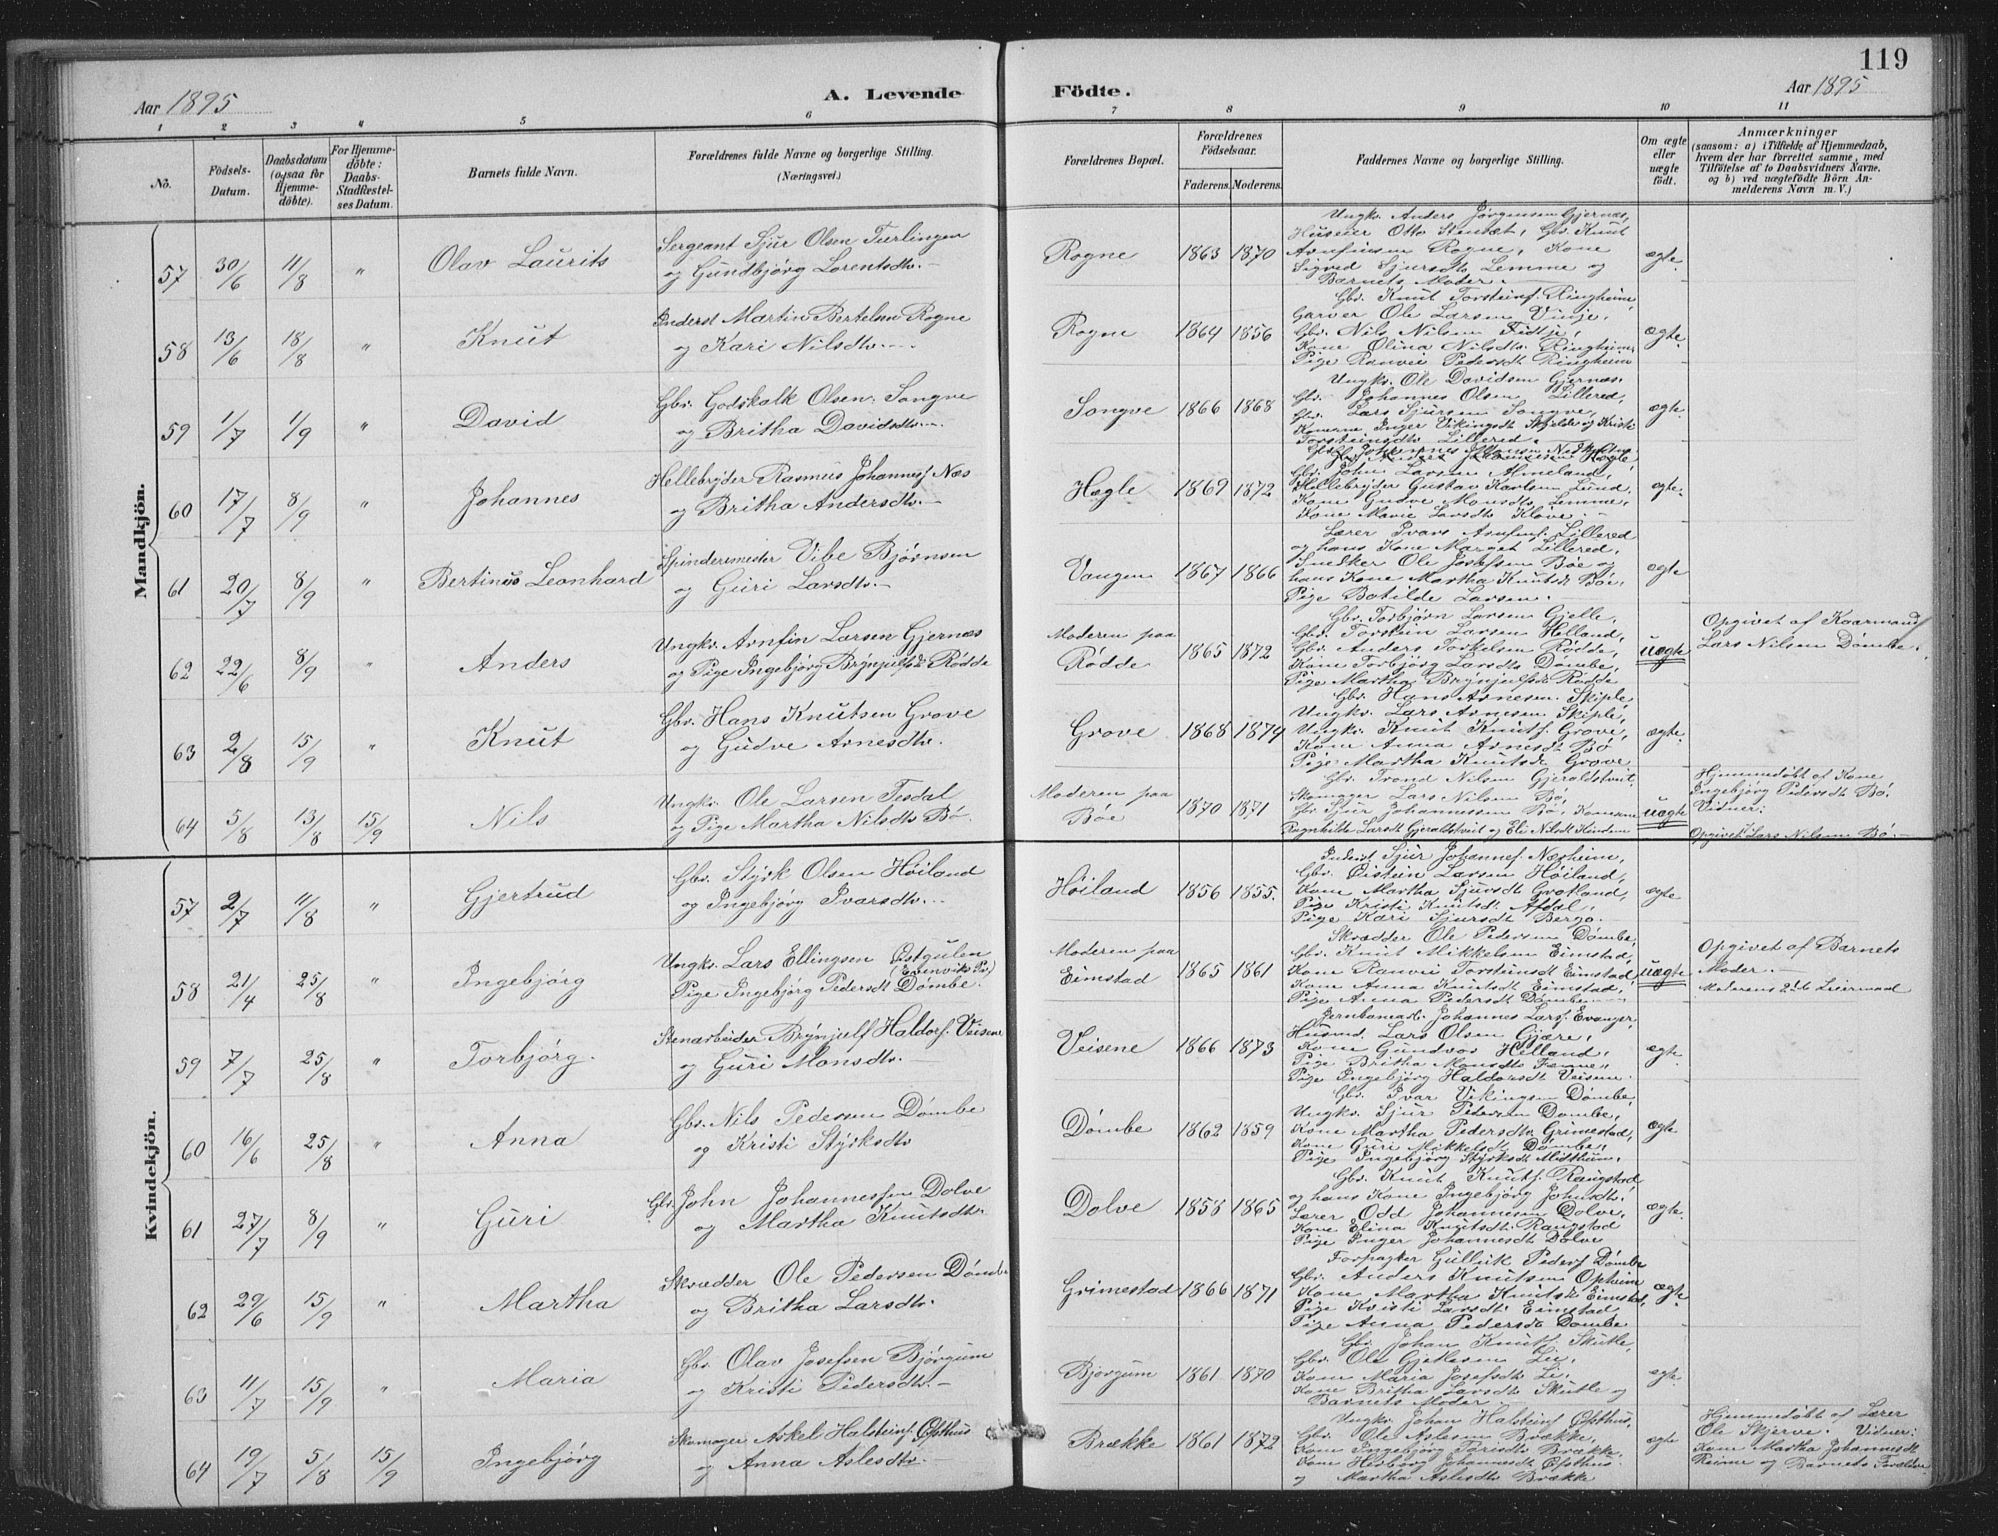 119
Aar 1895
A. Levende Födte.
Aar 1895
1 2 3 4 5 6 7 8 9 10 11
No.
Födsels-Datum.
Daabsdatum (ogsaa for Hjemme-döbte).
For Hjemme-döbte: Daabs-Stadfæstel-ses Datum.
Barnets fulde Navn.
Forældrenes fulde Navne og borgerlige Stilling.
(Næringsvei.)
Forældrenes Bopæl.
Forældrenes Födselsaar.
Faderens. Moderens.
Faddernes Navne og borgerlige Stilling.
Om ægte eller uægte födt.
Anmærkninger
(saasom: a) i Tilfælde af Hjemmedaab,
hvem der har forrettet samme, med
Tilföielse af to Daabsvidners Navne,
og b) ved uægtefödte Börn An-
melderens Navn m. V.)
Mandkjön.
57 30/6 11/8 " Olav Laurits
Sergeant Sjur Olsen Tverlingen
og Gundbjørg Lorentsdtr.
Rogne 1863 1870
Ungk. Anders Jørgensen Gjernæs,
Huseier Otto Stenset, Gbr. Knut
Arnfinsen Rogne, Kone
Sigrid Sjursdtr Lemme og
Barnets Moder.
ægte
58 13/6 18/8 " Knut
Inderst Martin Bertelsen Rogne
og Kari Nilsdtr.
Rogne 1864 1856
Gbr. Knut Torsteins. Ringheim,
Garver Ole Larsen Vinje,
Gbr. Nils Nilsen Fidtje,
Kone Olina Nilsdtr. Ringheim,
Pige Ranvei Pedersdt Ringheim
ægte
59 1/7 1/9 " David
Gbr. Godskalk Olsen Songve
og Britha Davidsdtr.
Songve 1866 1868
Ungk. Ole Davidsen Gjernæs.
Gbr. Johannes Olsen Lillered,
Gbr. Lars Sjursen Songve,
Konerne Inger Vikingsdt Skjelde og Kristi
Torsteinsdtr Lillered.
ægte
60 17/7 8/9 " Johannes
Hellebryder Rasmus Johannes. Næs
og Britha Andersdtr.
Hægle 1869 1872
Gbr. John Larsen Almeland,
Hellebryder Gustav Karlsen Lund,
Kone Gudve Monsdtr Lemme,
Kone Marie Larsdtr Kløve.
ægte
61 20/7 8/9 " Bertinus Leonhard
Spinderimester Vibe Bjørnsen
og Guri Larsdtr.
Vangen 1867 1866
Lærer Ivars Arnfins. Lillered
og hans Kone Marget Lillered,
Snedker Ole Josefsen Bøe og
hans Kone Martha Knutsdt Bøe,
Pige Botilde Larsen.
ægte
62 22/6 8/9 " Anders
Ungk. Arnfin Larsen Gjernæs
og Pige Ingebjørg Brynjulfsdt Rødde
Moderen paa
Rødde 1865 1872
Gbr. Torbjørn Larsen Gjelle,
Gbr. Torstein Larsen Helland,
Gbr. Anders Torkelsen Rødde,
Kone Torbjørg Larsdtr Dømbe,
Pige Martha Brynjulfsdt Rødde
uægte
Opgivet af Kaarmand
Lars Nilsen Dømbe.
63 2/8 15/9 " Knut
Gbr. Hans Knutsen Grove
og Gudve Arnesdtr.
Grove 1868 1874
Gbr. Hans Arnesen Skiple,
Ungk. Lars Arnesen Skiple,
Ungk. Knut Knuts. Grove,
Kone Anna Arnesdt Bø
Pige Martha Knutsdt Grove
ægte
64 5/8 13/8 15/9 Nils
Ungk. Ole Larsen Tesdal
og Pige Martha Nilsdtr Bø.
Moderen paa
Bøe 1870 1871
Gbr. Trond Nilsen Gjeraldstveit
Skomager Lars Nilsen Bø,
Gbr Sjur Johannessen Bø, Konerne
Ragnhilde Larsdt Gjeraldstveit og Eli Nilsdt Kinden
uægte
Hjemmedøbt af Kone
Ingebjørg Pedersdt Bø.
Vidner:
Opgivet: Lars Nilsen Bø.
Kvindekjön.
57 2/7 11/8 " Gjertrud
Gbr. Styrk Olsen Høiland
og Ingebjørg Ivarsdtr.
Høiland 1856 1855.
Inderst Sjur Johannes. Næsheim,
Gbr. Øistein Larsen Høiland,
Kone Martha Sjursdt Grøtland,
Pige Kristi Knutsdt Afdal,
Pige Kari Sjursdt Bergo.
ægte
58 21/4 25/8 " Ingebjørg
Ungk. Lars Ellingsen Østgulen
(Evenviks Pr.)
Pige Ingebjørg Pedersdt Dømbe.
Moderen paa
Eimstad 1865 1861
Skrædder Ole Pedersen Dømbe,
Gbr. Knut Mikkelsen Eimstad,
Kone Ranvei Torsteinsdt Eimstad,
Kone Anna Knutsdt Eimstad,
Pige Anna Pedersdt Dømbe
uægte
Opgivet af Barnets
Moder.
Moderens 2det Leiermaal
59 7/7 25/8 " Torbjørg.
Stenarbeider Brynjulf Haldors. Veisene
og Guri Monsdtr.
Veisene 1866 1873
Jernbanearb. Johannes Lars. Evanger,
Husmd. Lars Olsen Gjære,
Kone Gundvor Helland,
Pige Britha Monsdtr Fenne,
Pige Ingebjørg Haldorsdt Veisene.
ægte
60 16/6 25/8 " Anna
Gbr. Nils Pedersen Dømbe
og Kristi Styrksdtr
Dømbe 1862 1859
Gbr. Ivar Vikingsen Dømbe,
Ungk. Sjur Pedersen Dømbe,
Kone Martha Pedersdtr Grimestad,
Kone Guri Mikkelsdt Dømbe,
Pige Ingebjørg Styrksdt Midthun.
ægte
61 27/7 8/9 " Guri
Gbr. John Johannessen Dolve
og Martha Knutsdtr.
Dolve 1858 1865
Gbr. Knut Knuts. Rangstad
og hans Kone Ingebjørg Johnsdtr.
Lærer Odd Johannesen Dolve,
Kone Elina Knutsdt. Rangstad
Pige Inger Johannesdt Dolve
ægte
62 29/6 15/9 " Martha
Skrædder Ole Pedersen Dømbe
og Britha Larsdtr.
Grimestad 1866 1871
Forpagter Gullik Peders. Dømbe
Gbr. Anders Knutsen Opheim
Kone Martha Knutsdt Eimstad,
Pige Kristi Larsdt. Eimstad
Pige Anna Pedersdt Dømbe
ægte
63 11/7 15/9 " Maria
Gbr. Olav Josefsen Bjørgum
og Kristi Pedersdtr.
Bjørgum 1861 1870
Gbr. Johan Knuts. Skutle,
Gbr. Ole Gjetlesen Li,
Kone Maria Josefsdtr Li,
Kone Britha Larsdt Skutle og
Barnets Moder.
ægte
64 19/7 5/8 15/9 Ingebjørg
Skomager Askel Halsteins. Opsthus
og Anna Aslesdtr.
Brække 1861 1872
Ungk. Johan Halsteins. Opsthus,
Gbr. Ole Aslesen Brække,
Kone Ingebjørg Torisdtr Brække
Kone Herborg Johannesdt Opsthus
og Martha Aslesdtr Brække
ægte
Hjemmedøbt af Lærer
Ole Skjerve. Vidner:
Kone Martha Johannesdt
Reime og Barnets Forældre